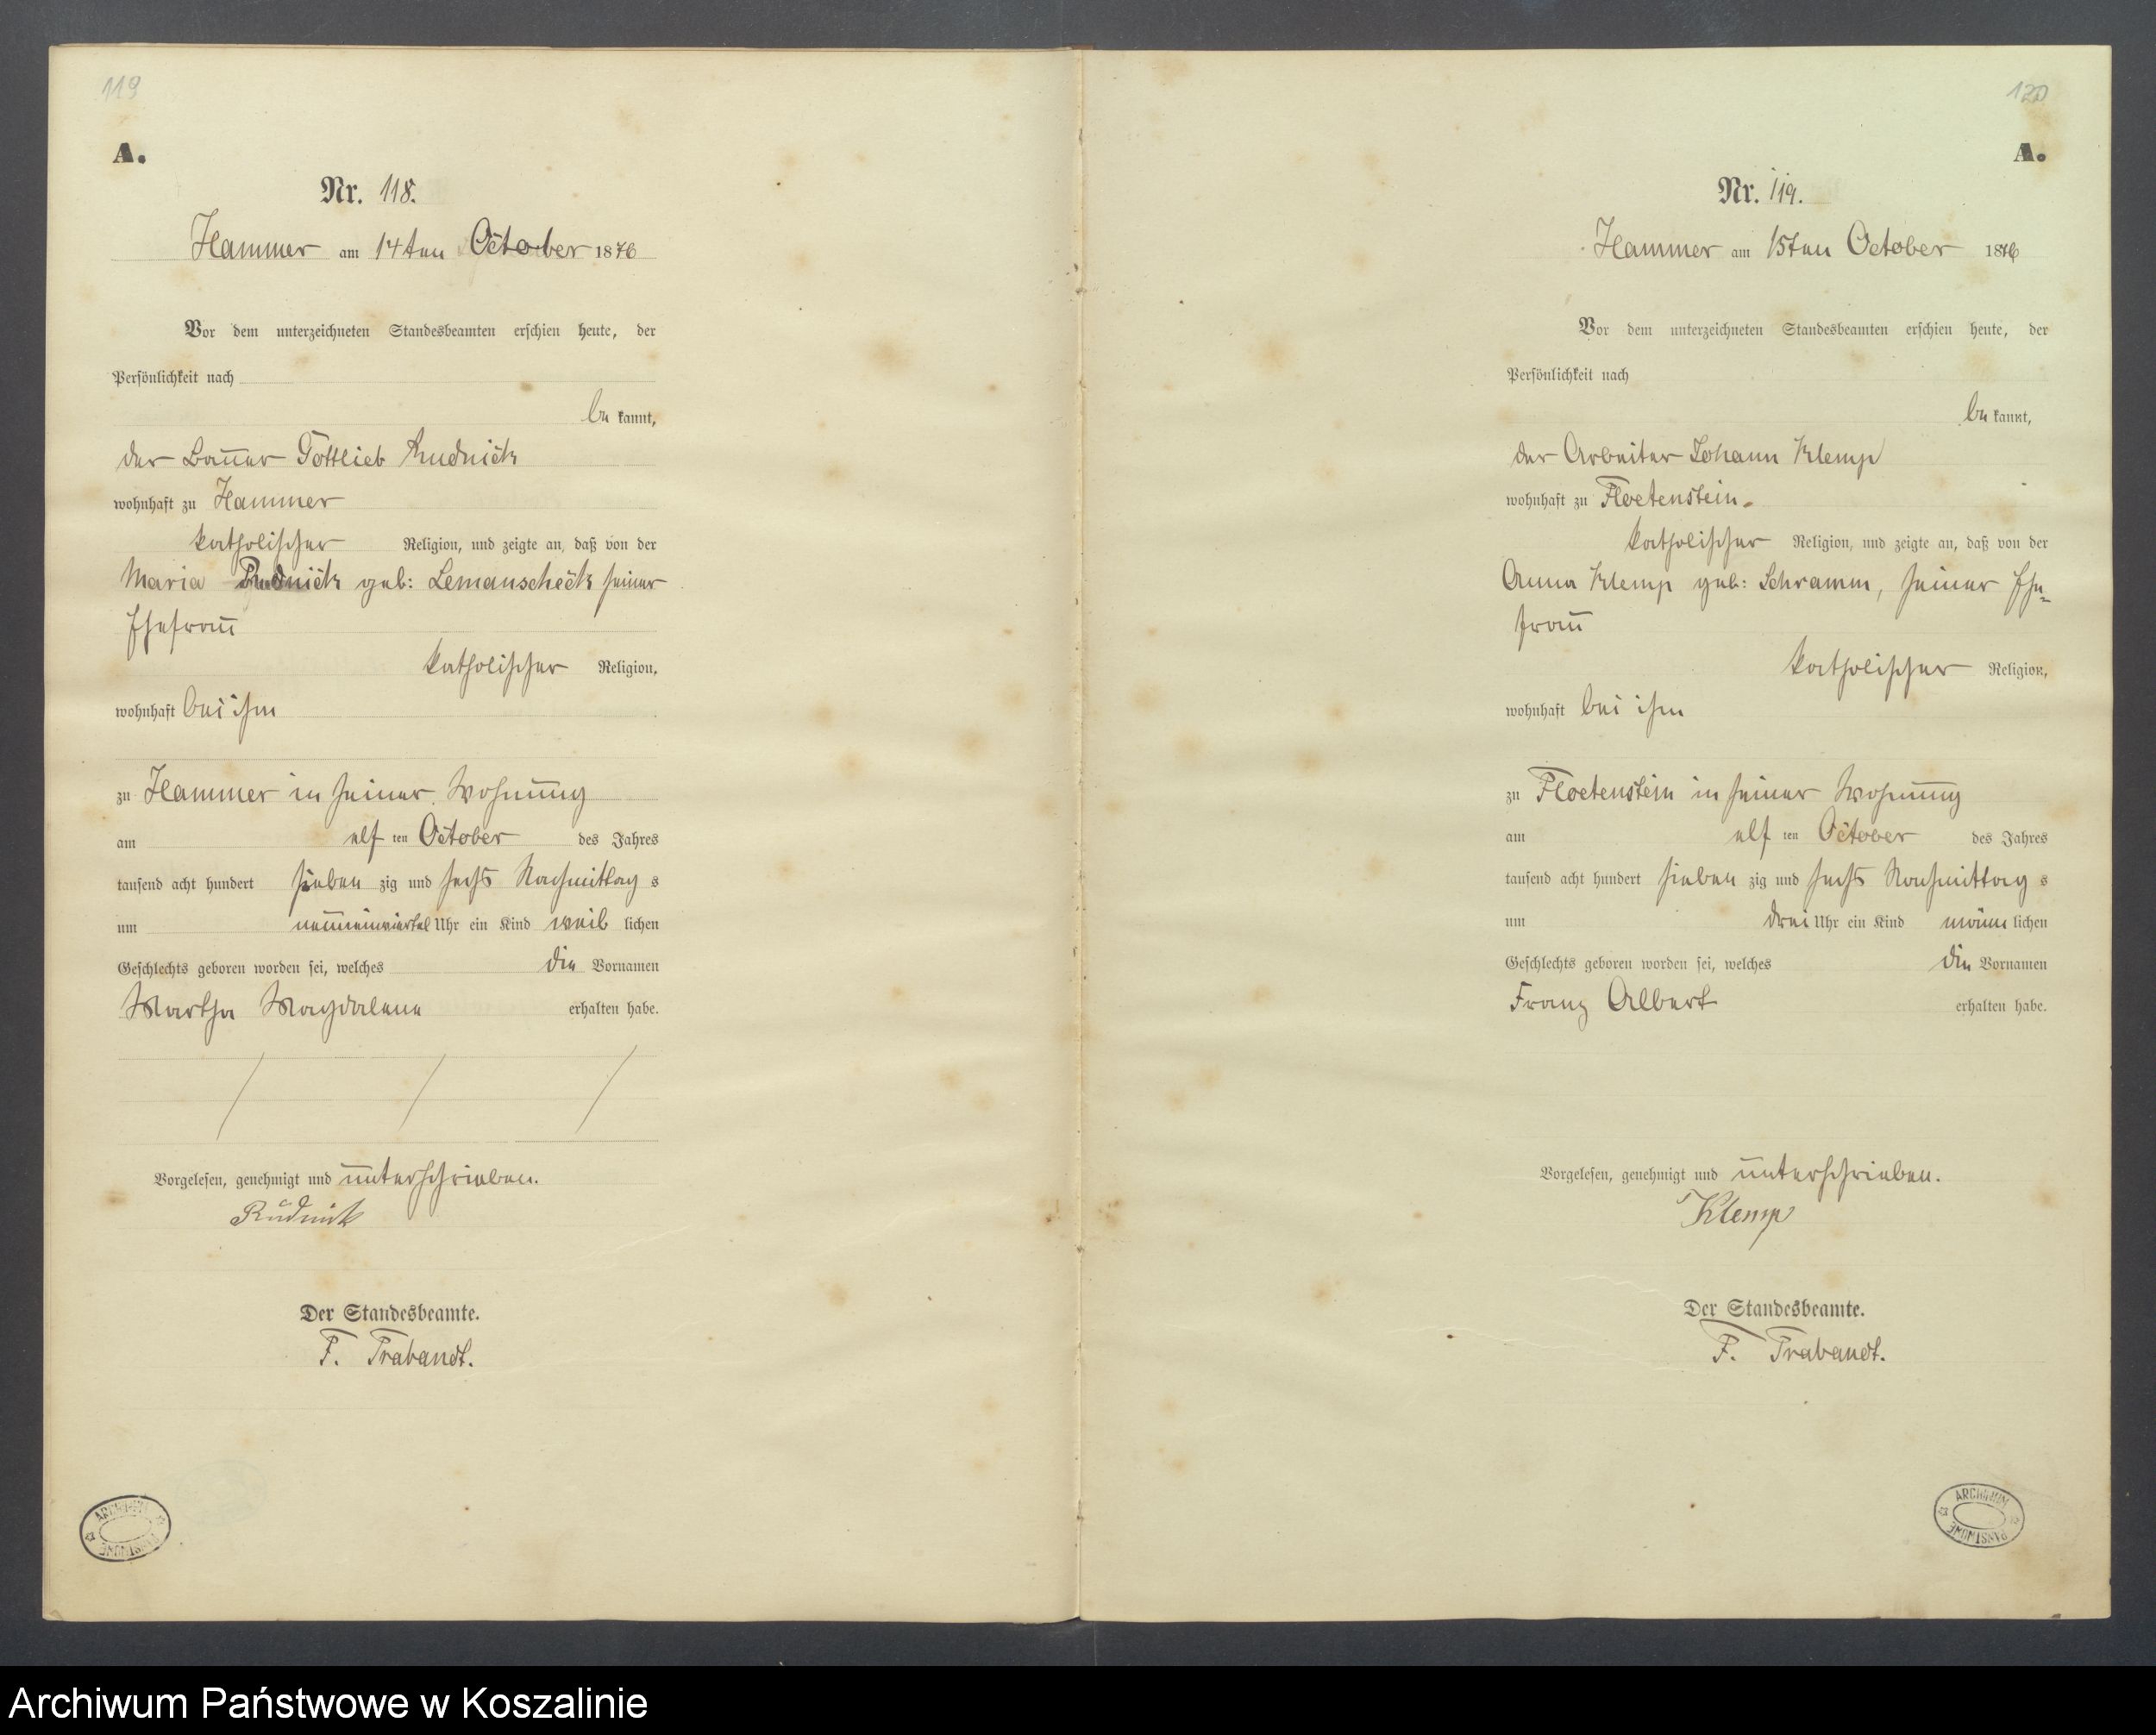 119
A.
Nr. 118.
Hammer am 14ten October 1876
Vor dem unterzeichneten Standesbeamten erschien heute, der
Persönlichkeit nach
be kannt,
der Bauer Gottlieb Rudnick
wohnhaft zu Hammer
katholischer Religion, und zeigte an, daß von der
Maria Rudnick geb: Lemanscheck seiner
Ehefrau
katholischer Religion,
wohnhaft bei ihm
zu Hammer in seiner Wohnung
am elf ten October des Jahres
tausend acht hundert sieben zig und sechs Nachmittag s
um neuneinviertel Uhr ein Kind weib lichen
Geschlechts geboren worden sei, welches die Vornamen
Martha Magdalene erhalten habe.
Vorgelesen, genehmigt und unterschrieben.
Rudnick
Der Standesbeamte.
F. Trabandt.
ARCHIWUM PAŃSTWOWE
120
A.
Nr. 119.
Hammer am 15ten October 1876
Vor dem unterzeichneten Standesbeamten erschien heute, der
Persönlichkeit nach
be kannt,
der Arbeiter Johann Klemp
wohnhaft zu Floetenstein
katholischer Religion, und zeigte an, daß von der
Anna Klemp geb: Schramm, seiner Ehe-
frau
katholischer Religion,
wohnhaft bei ihm
zu Floetenstein in seiner Wohnung
am elf ten October des Jahres
tausend acht hundert sieben zig und sechs Nachmittag s
um drei Uhr ein Kind männ lichen
Geschlechts geboren worden sei, welches die Vornamen
Franz Albert erhalten habe.
Vorgelesen, genehmigt und unterschrieben.
Klemp
Der Standesbeamte.
F. Trabandt.
ARCHIWUM PAŃSTWOWE
Archiwum Państwowe w Koszalinie